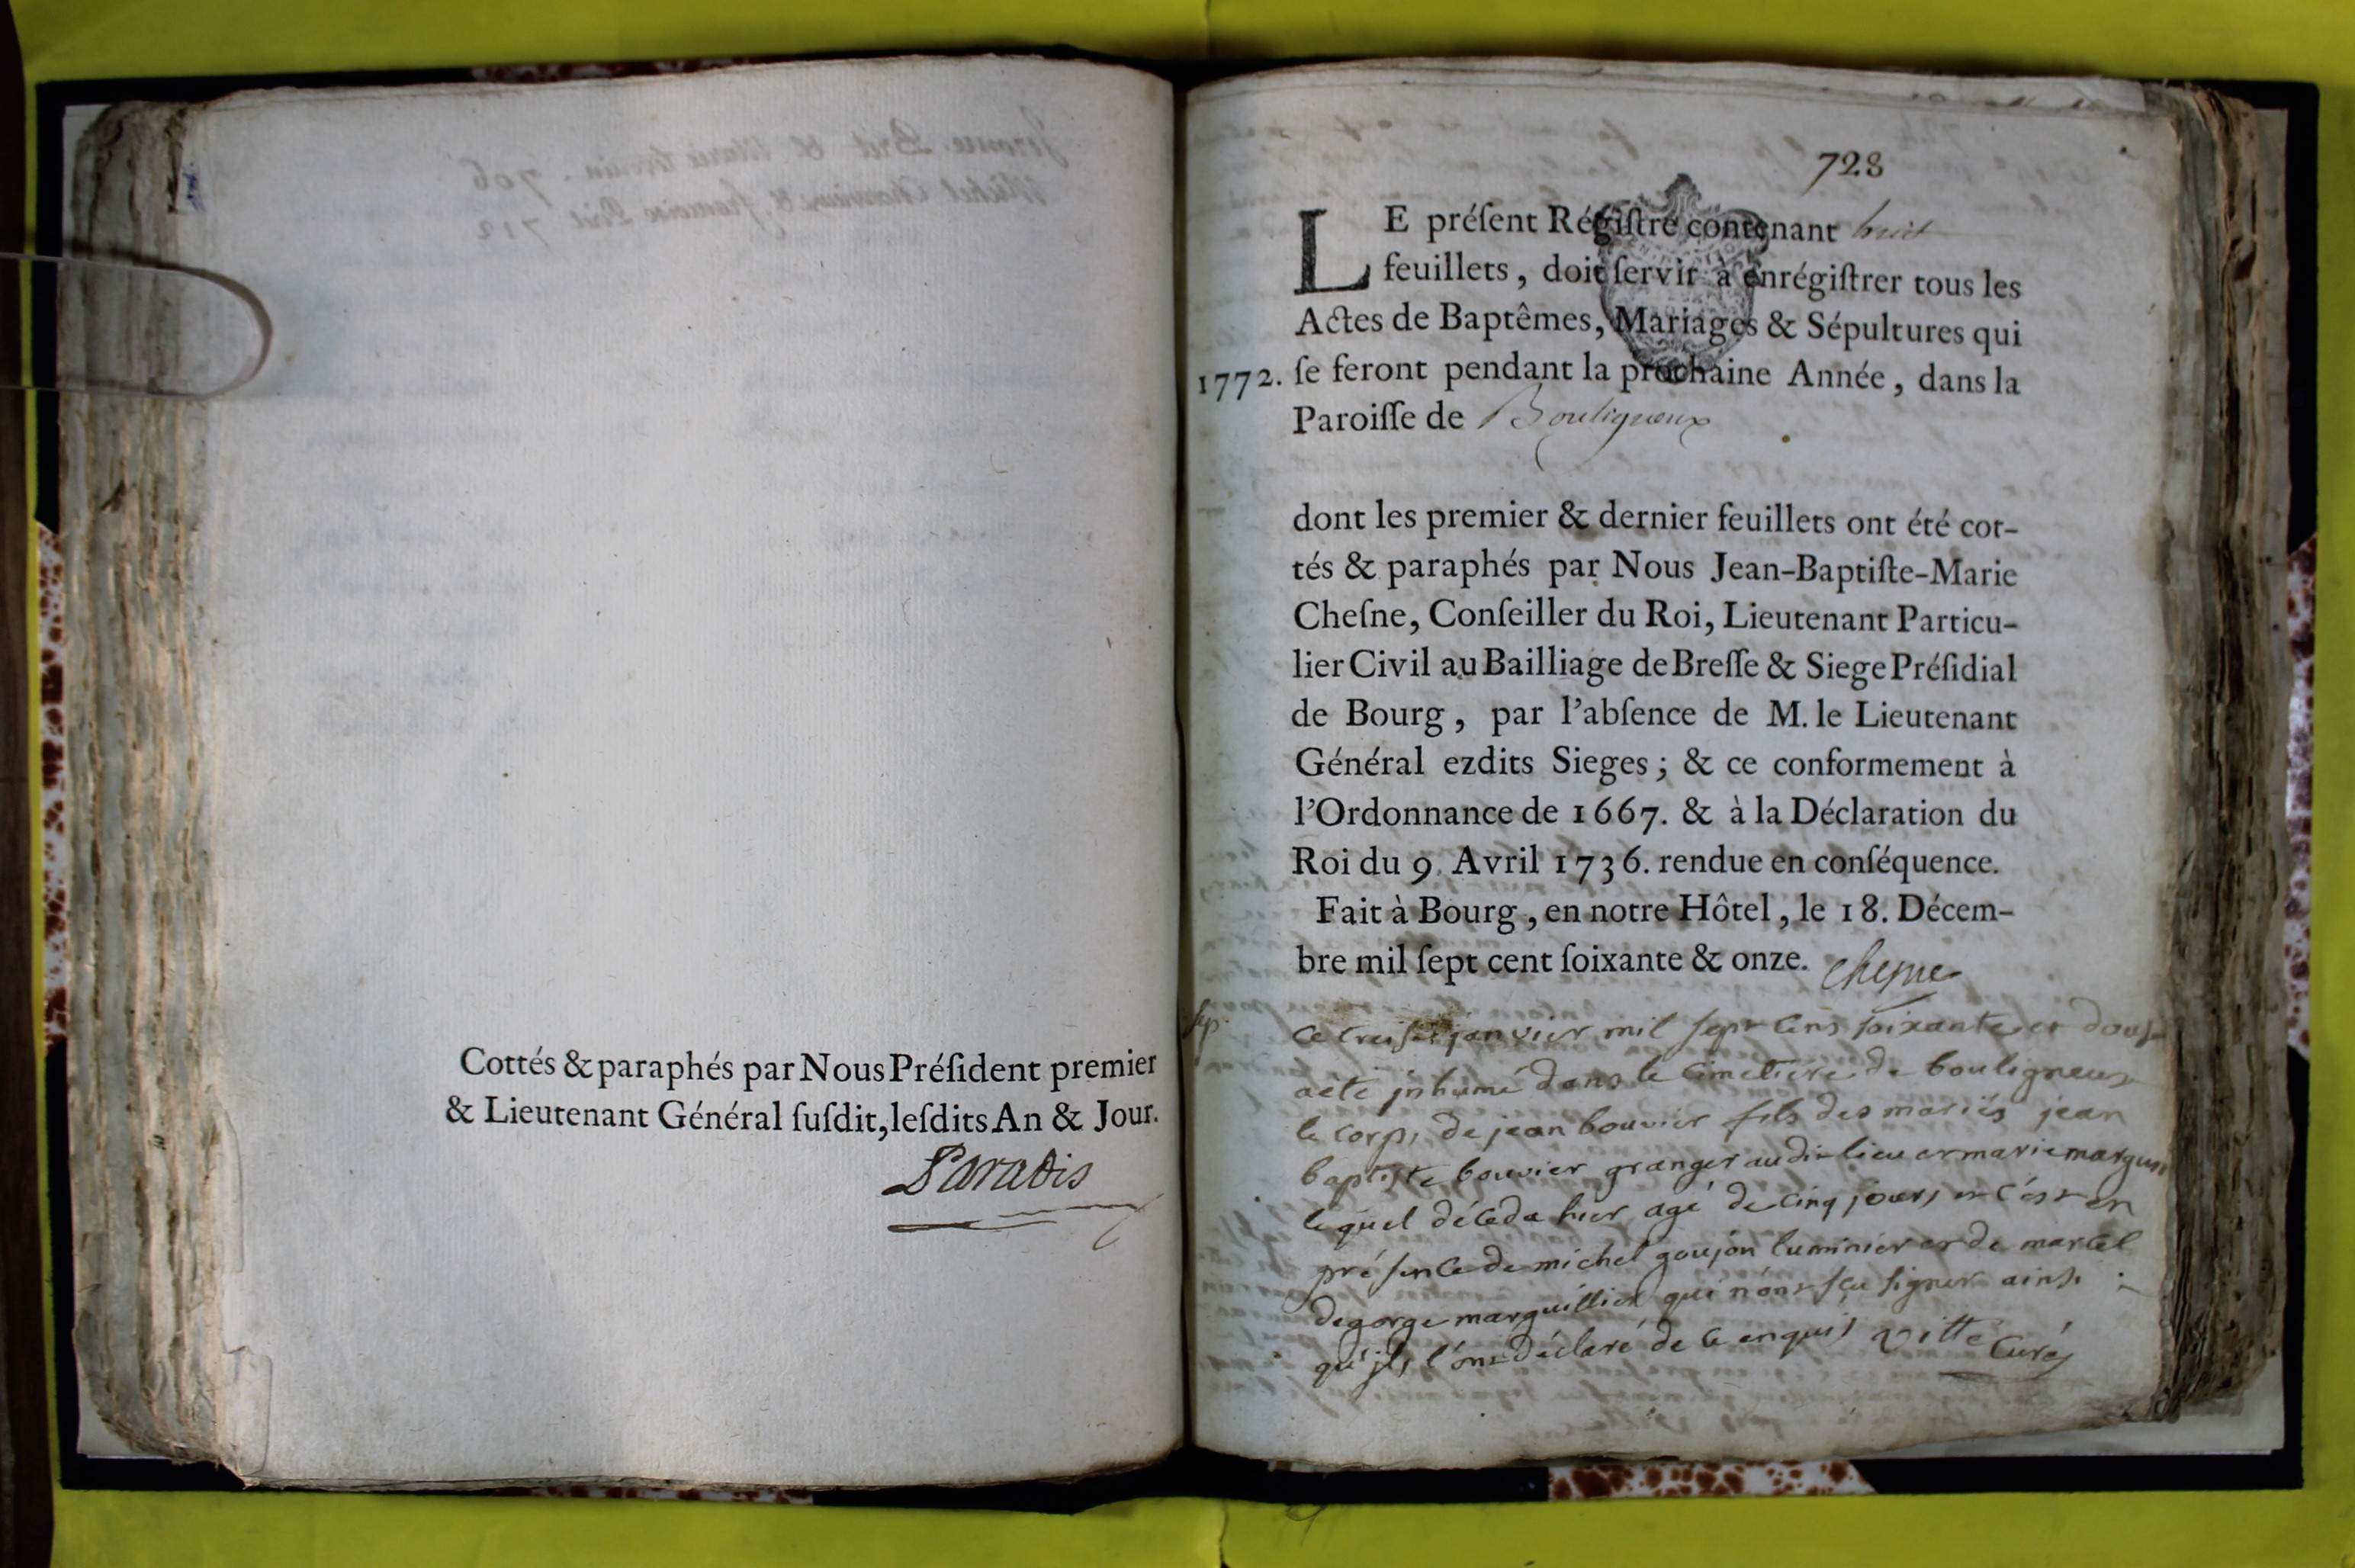 Cottés & paraphés par Nous Préſident premier
& Lieutenant Général ſuſdit, leſdits An & Jour.
Paradis
728
LE préſent Régiſtre contenant huit
feuillets, doit ſervir à enrégiſtrer tous les
Actes de Baptêmes, Mariages & Sépultures qui
1772. ſe feront pendant la prochaine Année, dans la
Paroiſſe de Bouligneux
dont les premier & dernier feuillets ont été cot-
tés & paraphés par Nous Jean-Baptiſte-Marie
Cheſne, Conſeiller du Roi, Lieutenant Particu-
lier Civil au Bailliage de Breſſe & Siege Préſidial
de Bourg, par l'abſence de M. le Lieutenant
Général ezdits Sieges; & ce conformement à
l'Ordonnance de 1667. & à la Déclaration du
Roi du 9. Avril 1736. rendue en conſéquence.
Fait à Bourg, en notre Hôtel, le 18. Décem-
bre mil ſept cent ſoixante & onze. Chesne
sep.
ce treise janvier mil sept cens soixante et douse
a eté inhumé dans le cimetiere de bouligneux
le corps de jean bouvier fils des mariés jean
baptiste bouvier granger au dit lieu et marie
lequel déceda hier agé de cinq jours et c'est en
présence de michel goujon luminier et de marcel
degorge marguillier qui n'ont sçu signer ainsi
qu'ils l'ont déclaré de ce enquis vitte curé